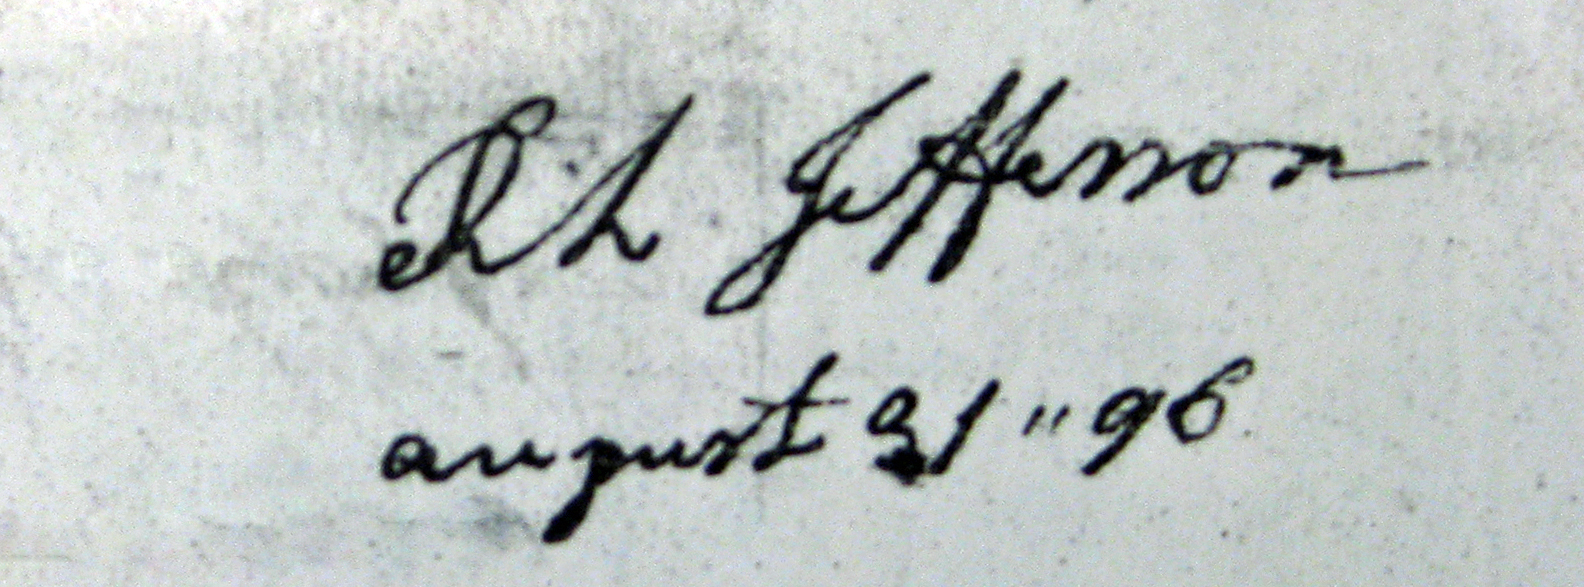 R L Jefferson
august 31 " 96